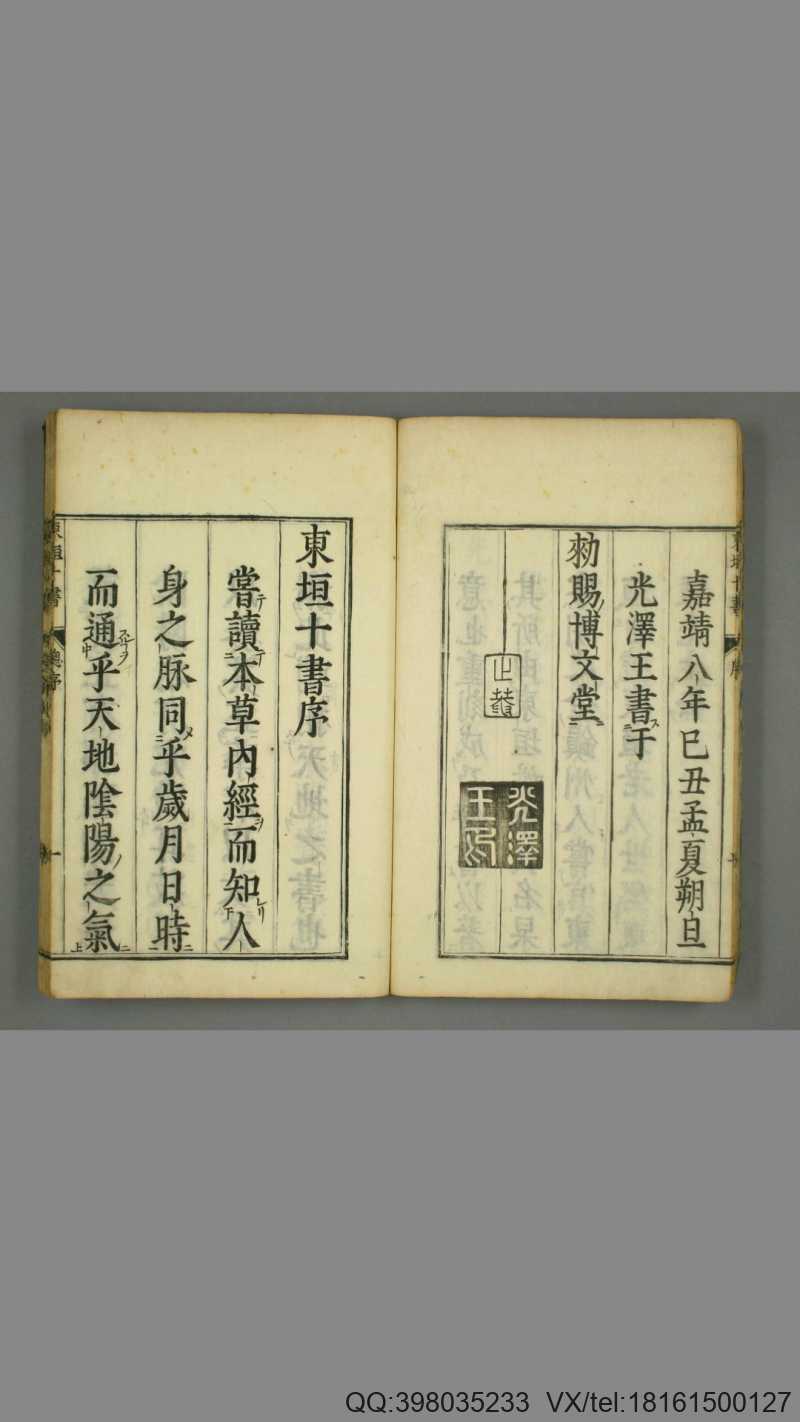 嘉靖八年已丑孟夏朔旦
光澤王書于
勑賜博文堂
光澤
王
東垣十書序
嘗讀本草內經而知人
身之脉同乎歲月日時
而通乎天地陰陽之氣
東垣十書
總序
一
QQ:398035233 VX/tel:18161500127